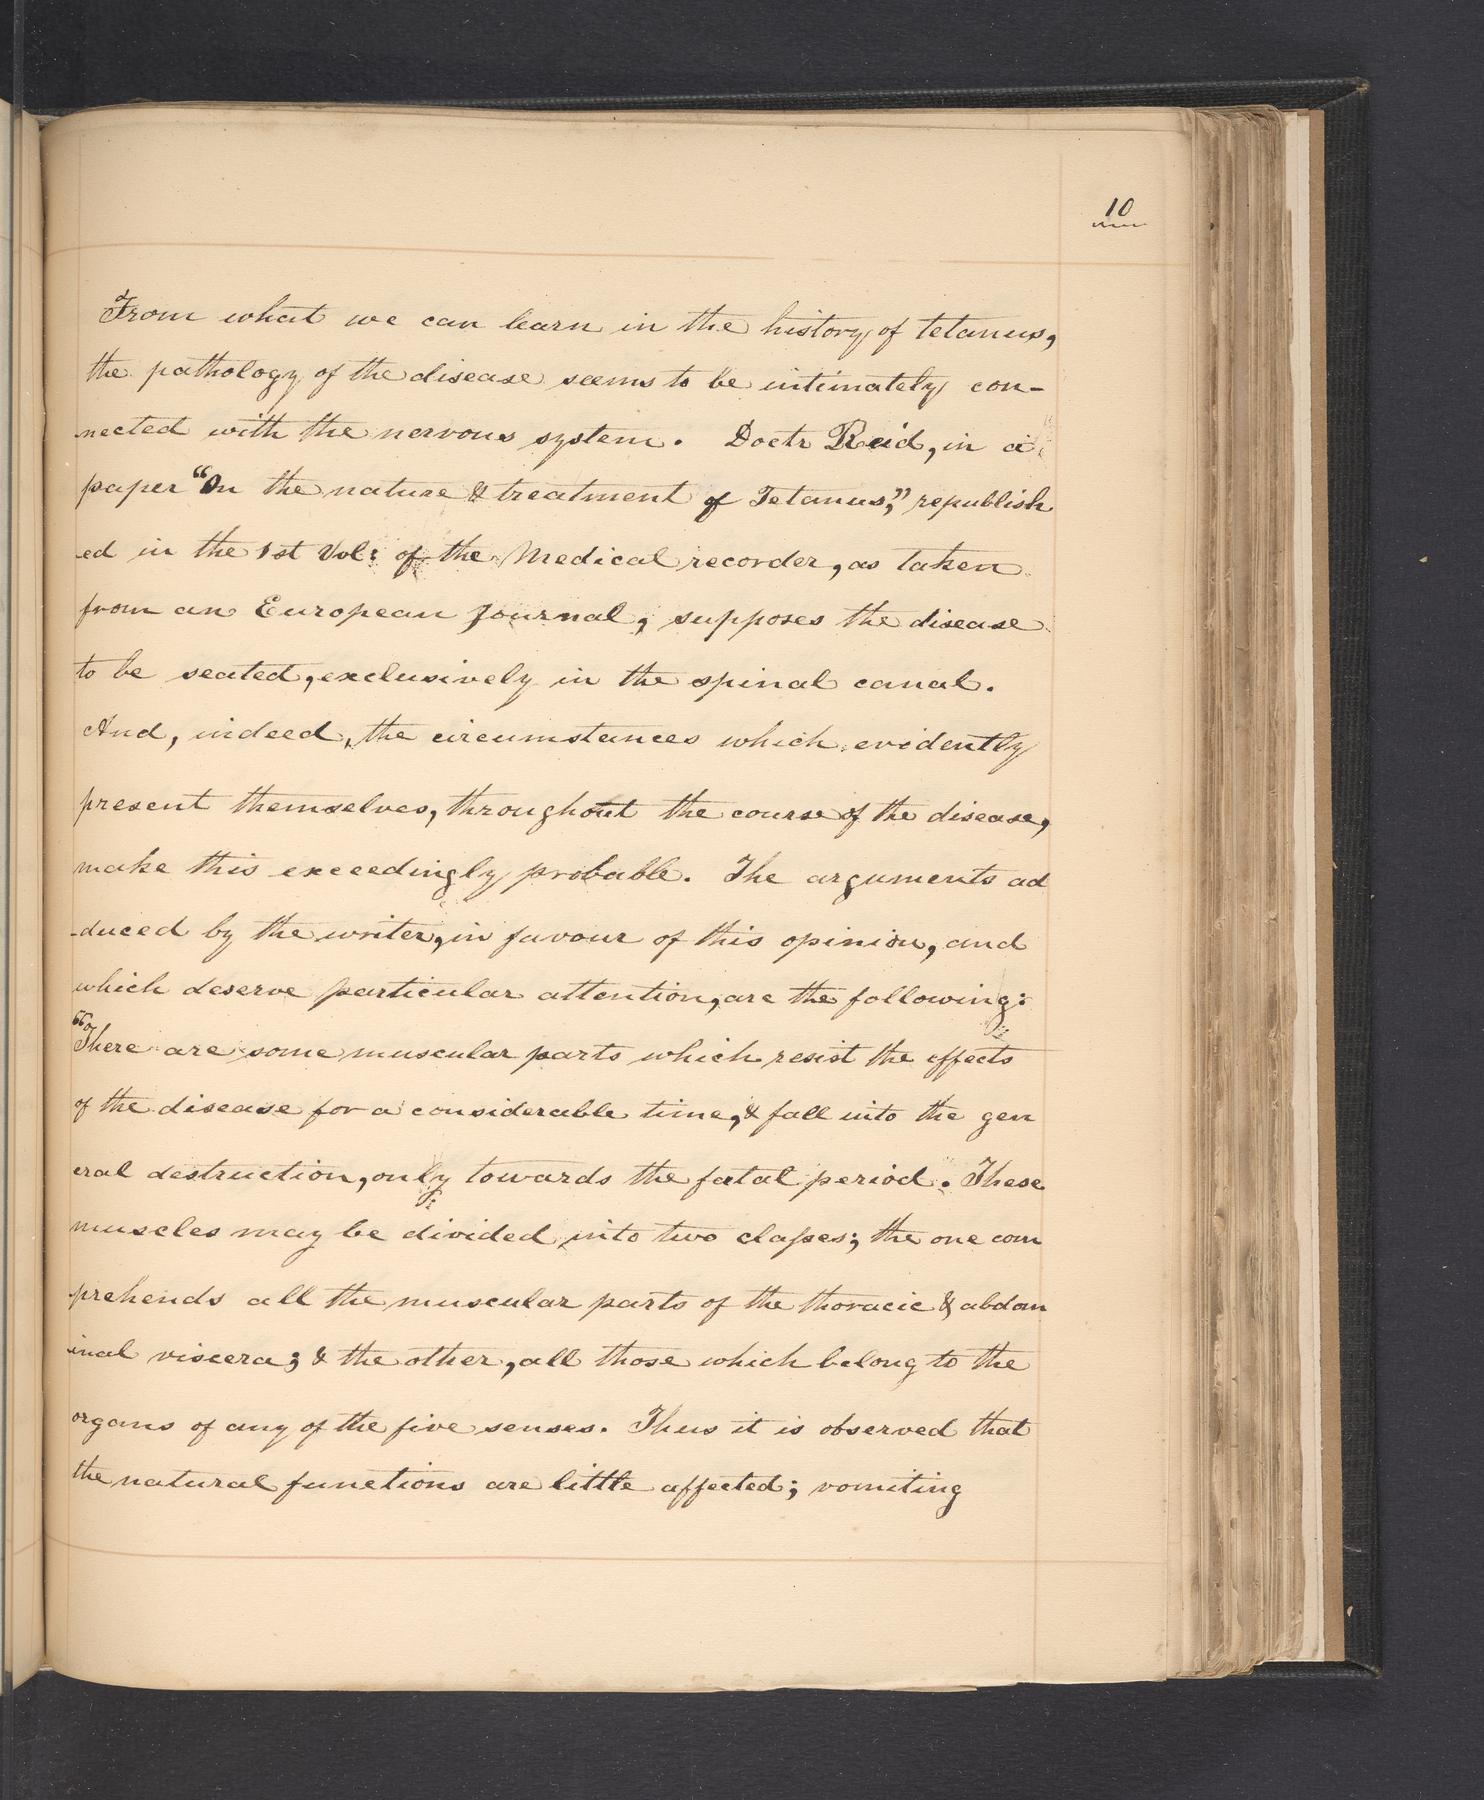 10
From what we can learn in the history of tetanus,
the pathology of the disease seems to be intimately con-
nected with the nervous system. Doctr Reid, in a
paper "On the nature & treatment of Tetanus," republish
-ed in the 1st Vol: of the Medical recorder, as taken
from an European Journal, supposes the disease
to be seated, exclusively in the spinal canal.
And, indeed, the circumstances which evidently
present themselves, throughout the course of the disease,
make this exceedingly probable. The arguments ad
-duced by the writer, in favour of this opinion, and
which deserve particular attention, are the following:
"There are some muscular parts which resist the effects
of the disease for a considerable time, & fall into the gen
eral destruction, only towards the fatal period. These
muscles may be divided into two claſses; the one com
prehends all the muscular parts of the thoracic & abdom
inal viscera; & the other, all those which belong to the
organs of any of the five senses. Thus it is observed that
the natural functions are little affected; vomiting